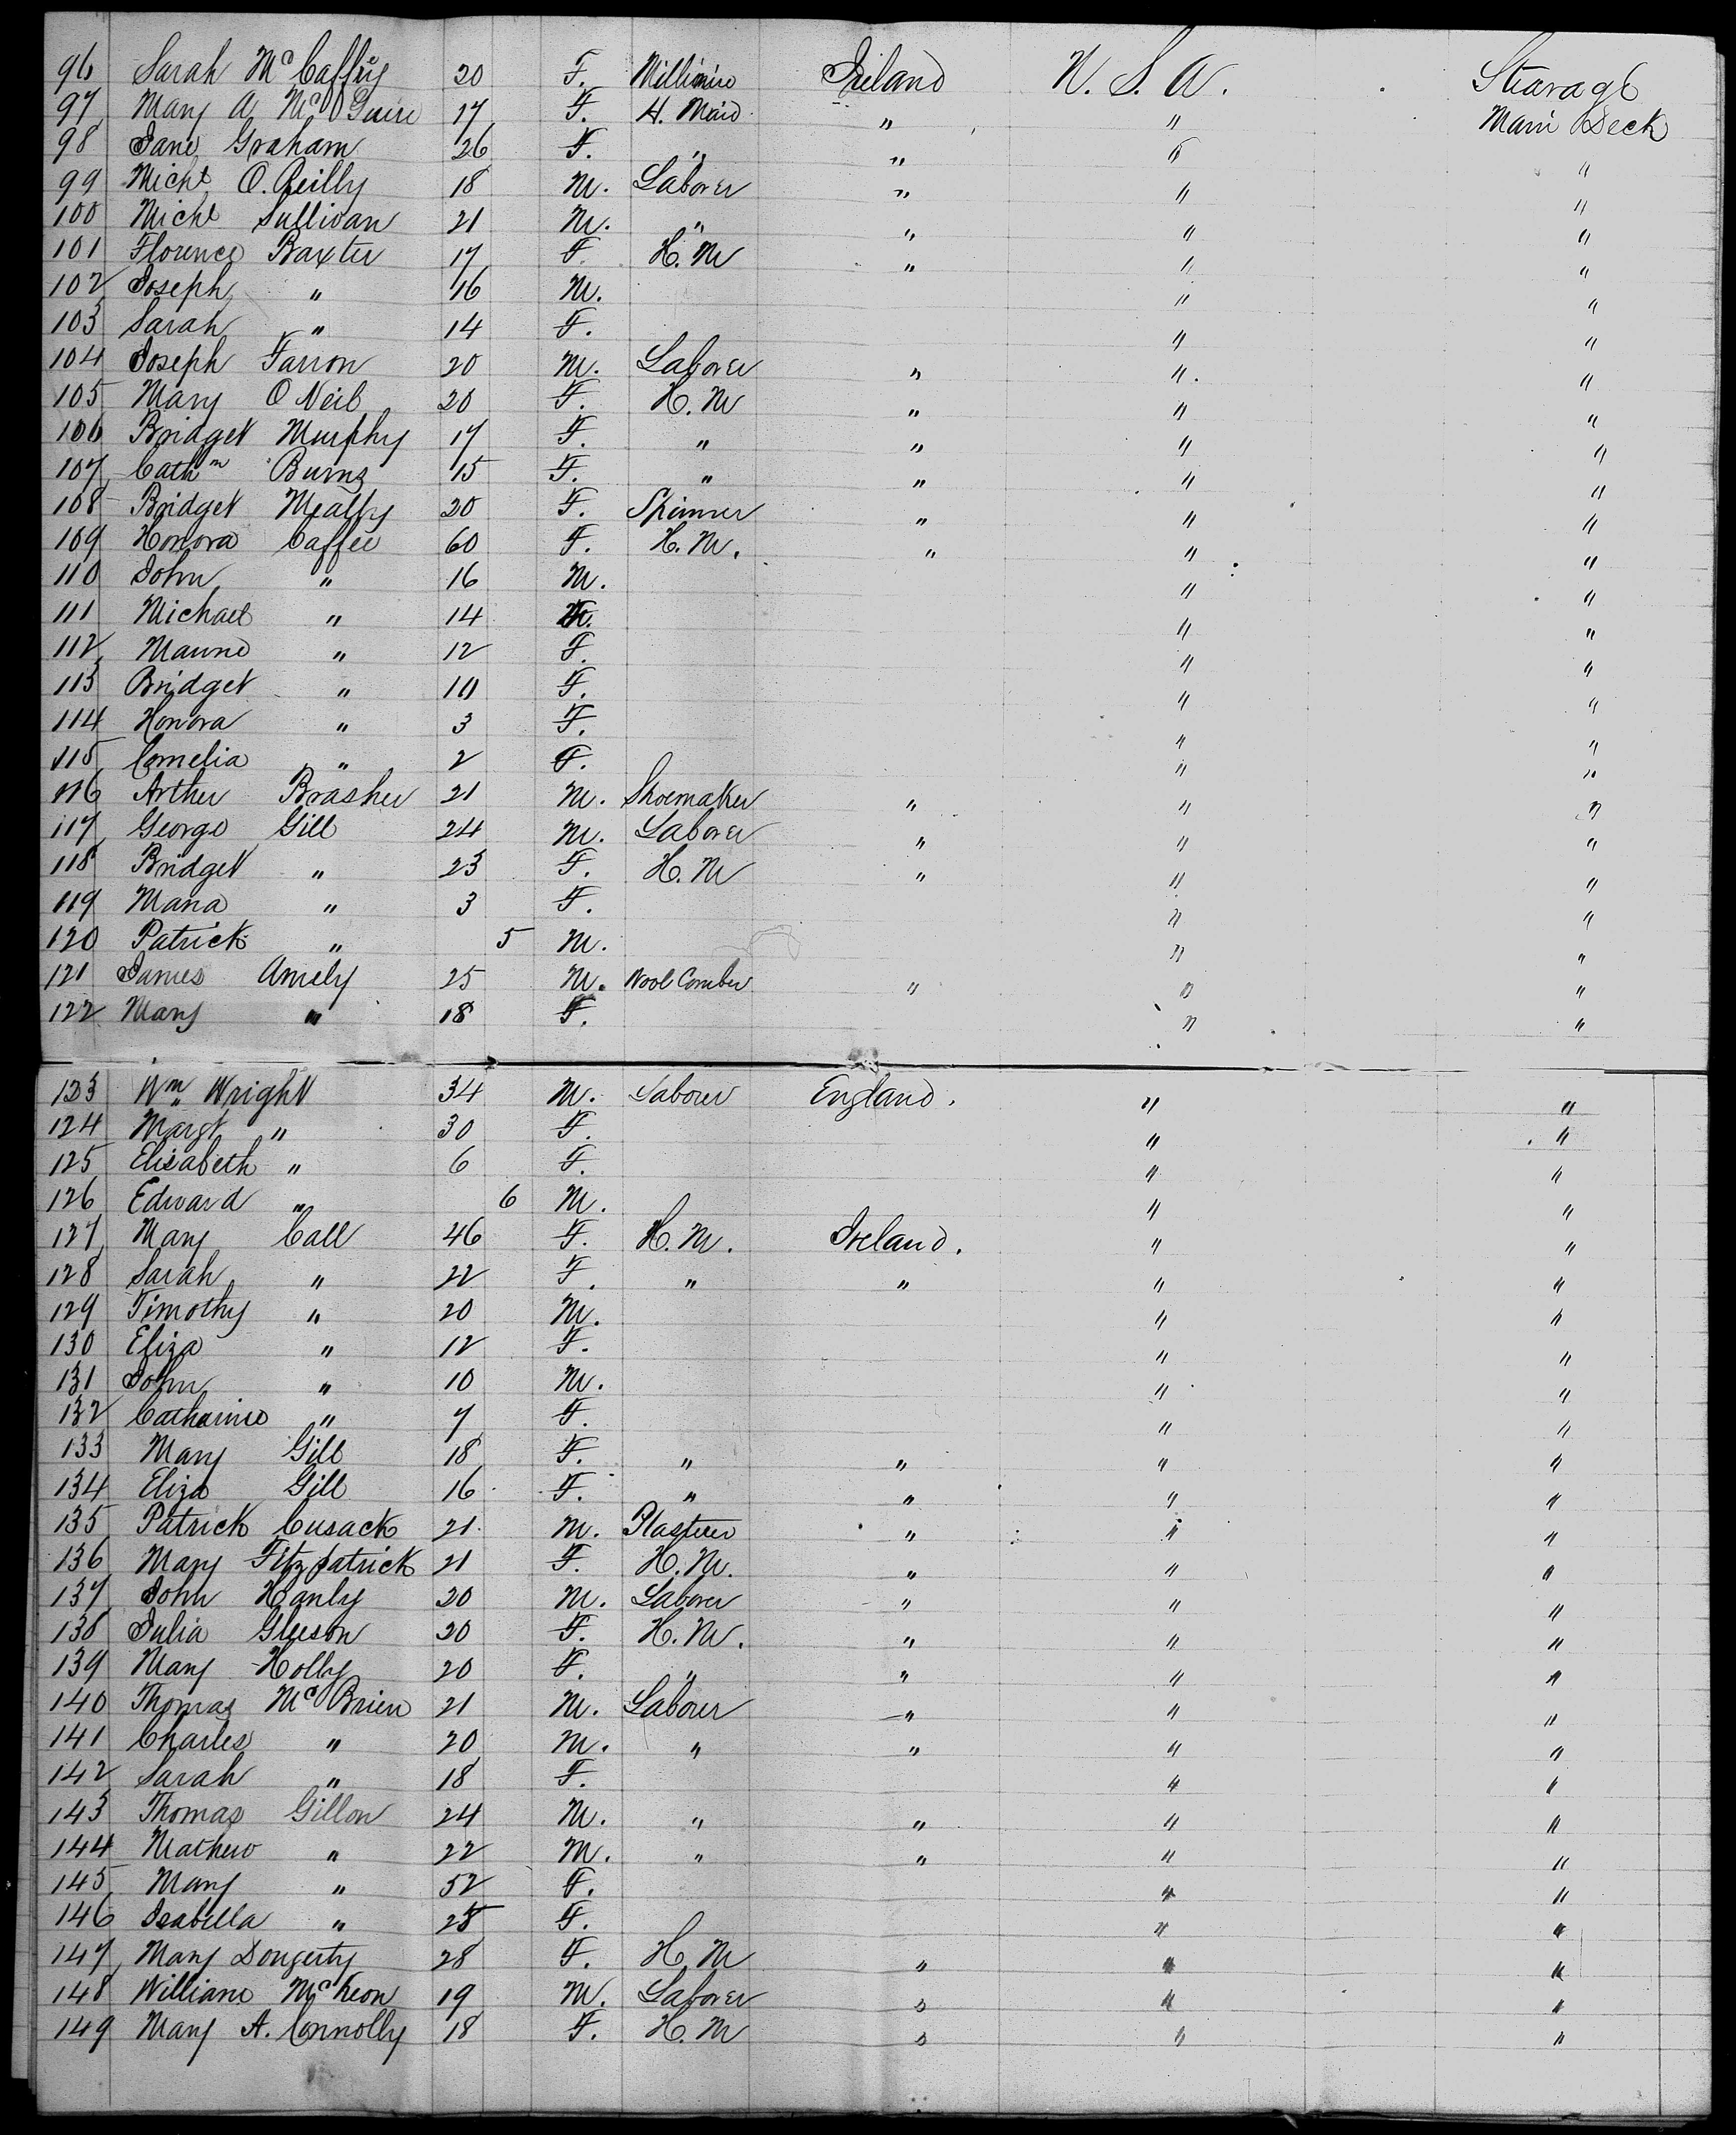 96 Sarah McCaffry 20 F. Milliner Ireland U. S. A. Stearage
97 Mary A McGuire 17 F. H. Maid " " Main Deck
98 Jane Graham 26 F. " " " "
99 Michl O. Reilly 18 M. Laborer " " "
100 Michl Sullivan 21 M. " " " "
101 Florence Baxter 17 F. H. M " " "
102 Joseph " 16 M. " "
103 Sarah " 14 F. " "
104 Joseph Farron 20 M. Laborer " " "
105 Mary O Neil 20 F. H. M " " "
106 Bridget Murphy 17 F. " " " "
107 Cathn Burns 15 F. " " " "
108 Bridget Mealty 20 F. Spinner " " "
109 Honora Caffee 60 F. H. M. " " "
110 John " 16 M. " "
111 Michael " 14 M. " "
112 " 12 F. " "
113 Bridget " 10 F. " "
114 Honora " 3 F. " "
115 Cornelia " 2 F. " "
116 Arthur Brasher 21 M. Shoemaker " " "
117 George Gill 24 M. Laborer " " "
118 Bridget " 23 F. H. M " " "
119 Maria " 3 F. " "
120 Patrick " 5 M. " "
121 James 25 M. Wool Comber " " "
122 Mary " 18 F. " "
123 Wm Wright 34 M. Laborer England. " "
124 Margt " 30 F. " "
125 Elisabeth " 6 F. " "
126 Edward " 6 M. " "
127 Mary Call 46 F. H. M. Ireland. " "
128 Sarah " 22 F. " " " "
129 Timothy " 20 M. " "
130 Eliza " 12 F. " "
131 John " 10 M. " "
132 Catharine " 7 F. " "
133 Mary Gill 18 F. " " " "
134 Eliza Gill 16 F. " " " "
135 Patrick Cusack 21 M. Plasterer " " "
136 Mary Fitzpatrick 21 F. H. M. " " "
137 John Hanly 20 M. Laborer " " "
138 Julia Gleeson 20 F. H. M. " " "
139 Mary Holly 20 F. " " " "
140 Thomas McBrien 21 M. Laborer " " "
141 Charles " 20 M. " " " "
142 Sarah " 18 F. " "
143 Thomas Gillon 24 M. " " " "
144 Mathew " 22 M. " " " "
145 Mary " 52 F. " "
146 Isabella " 25 F. " "
147 Mary Dougerty 28 F. H. M " " "
148 William McKeon 19 M. Laborer " " "
149 Mary A. Connolly 18 F. H. M " " "